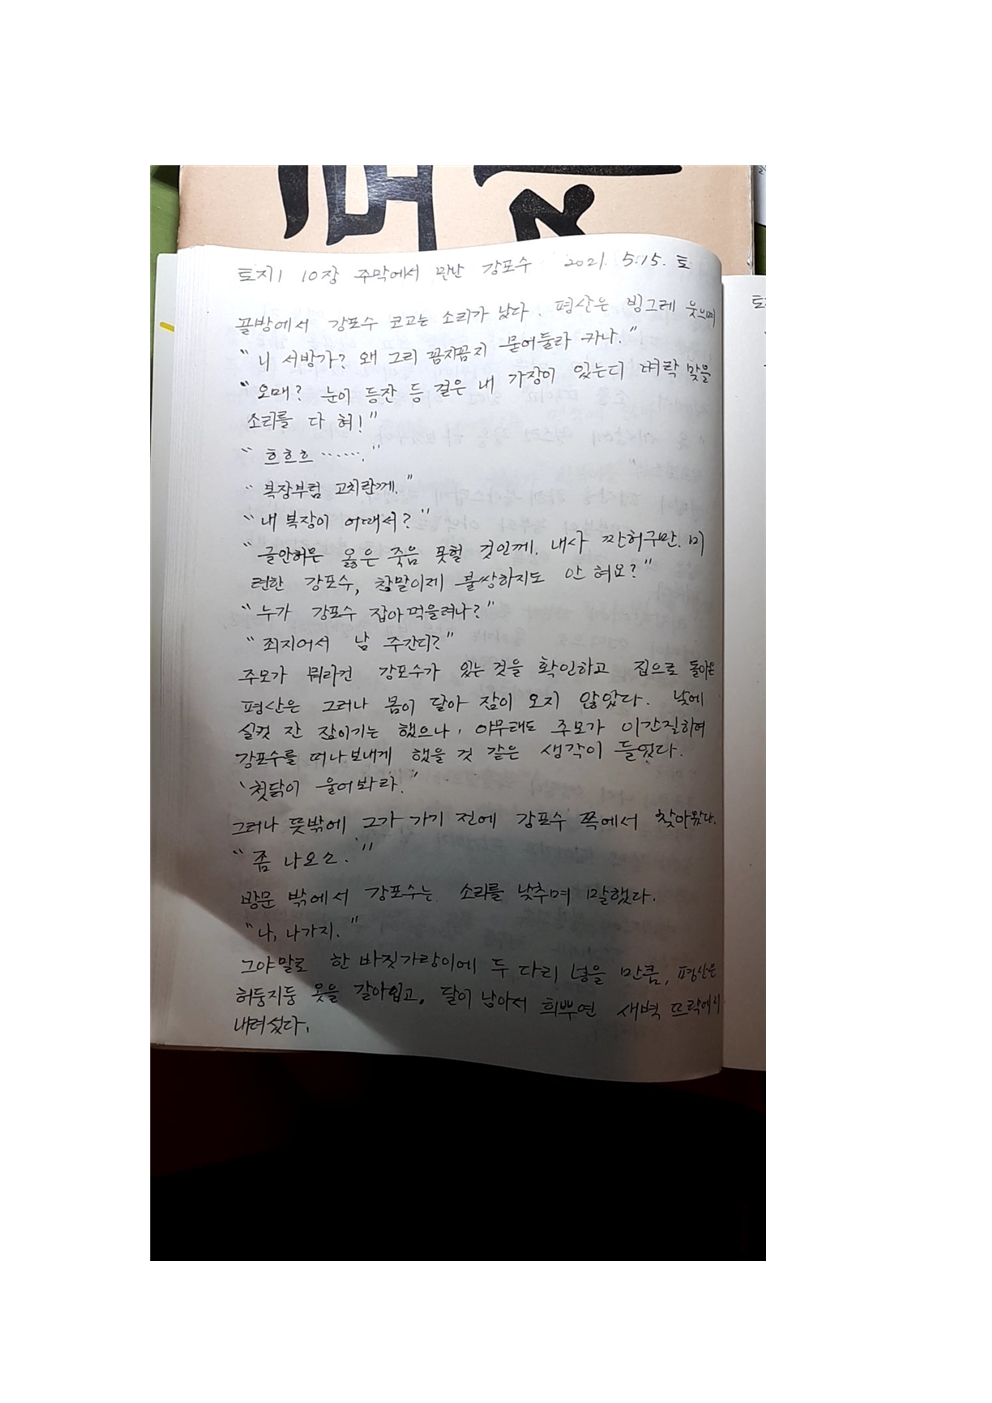 토지1 10장 주막에서 만난 강포수 2021. 5.15. 토
골방에서 강포수 코고는 소리가 났다. 평산은 빙그레 웃으며
"니 서방가? 왜 그리 꼼지꼼지 묻어둘라 카나."
"오매? 눈이 등잔 등 걸은 내 가장이 있는디 벼락 맞을
소리를 다 혀!"
"흐흐흐 ……."
"복장부텀 고치란께."
"내 복장이 어때서?"
"글안허믄 옳은 죽음 못헐 것인께. 내사 짠허구만. 미
련한 강포수, 참말이제 불쌍하지도 안 혀요?"
"누가 강포수 잡아먹을려나?"
"죄지어서 남 주간디?"
주모가 뭐라건 강포수가 있는 것을 확인하고 집으로 돌아온
평산은 그러나 몸이 달아 잠이 오지 않았다. 낮에
실컷 잔 잠이기는 했으나, 아무래도 주모가 이간질하여
강포수를 떠나보내게 했을 것 같은 생각이 들었다.
'첫닭이 울어봐라.'
그러나 뜻밖에 그가 가기 전에 강포수 쪽에서 찾아왔다.
"좀 나오소."
방문 밖에서 강포수는 소리를 낮추며 말했다.
"나, 나가지."
그야말로 한 바짓가랑이에 두 다리 넣을 만큼, 평산은
허둥지둥 옷을 갈아입고, 달이 남아서 희뿌연 새벽 뜨락에서
내려섰다.